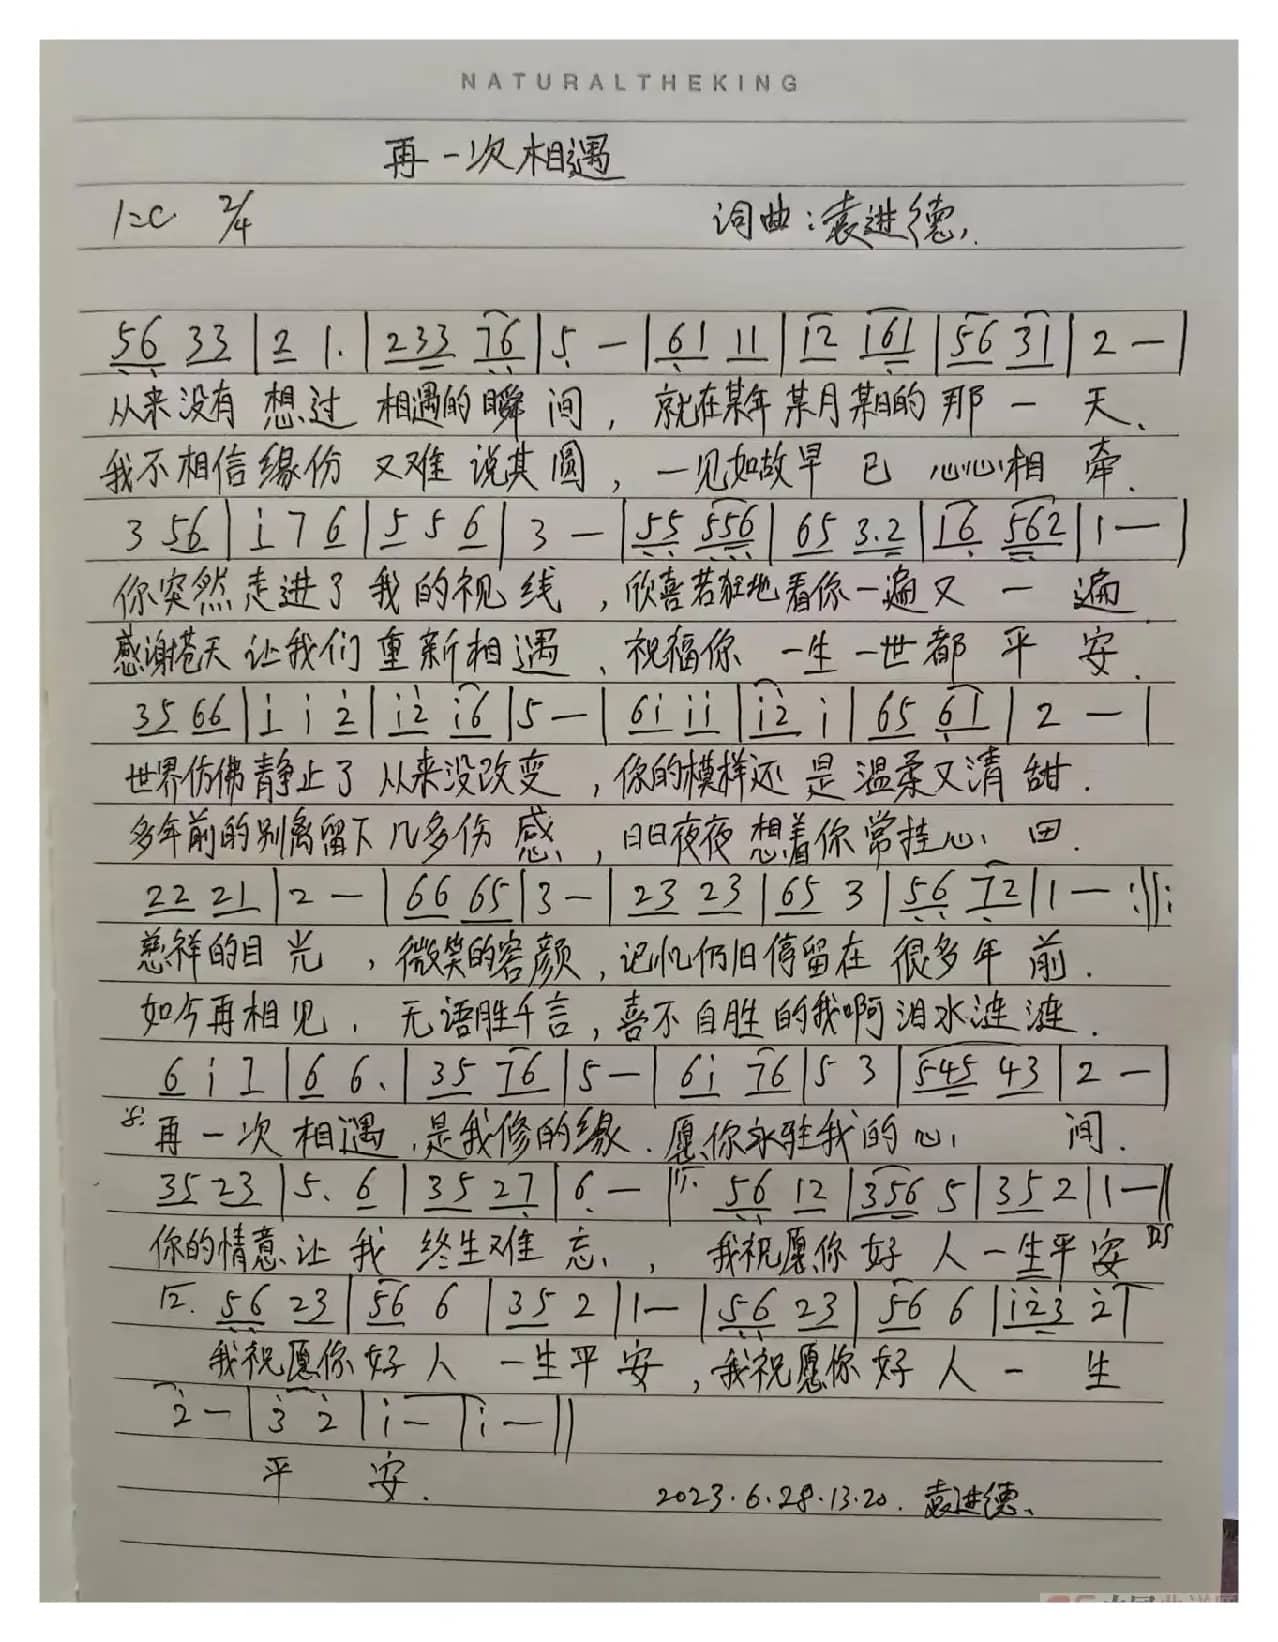 NATURALTHEKING
再一次相遇
1=C 2/4 词曲:袁进德.
56 33 | 2 1. | 233 76 | 5 — | 61 11 | 12 161 | 56 31 | 2 — |
从来没有 想过 相遇的瞬间, 就在某年某月某日的那一天、
我不相信缘份 又难说其圆, 一见如故早已心心相牵.
3 56 | i 7 6 | 5 5 6 | 3 — | 55 556 | 65 3.2 | 16 562 | 1 — |
你突然走进了我的视线,欣喜若狂地看你一遍又一遍
感谢苍天让我们重新相遇、祝福你一生一世都平安.
35 66 | i i 2 | i2 i6 | 5 — | 6i ii | i2 i | 65 61 | 2 — |
世界仿佛静止了从来没改变,你的模样还是温柔又清甜.
多年前的别离留下几多伤感、,日日夜夜想着你常挂心田.
22 21 | 2 — | 66 65 | 3 — | 23 23 | 65 3 | 56 72 | 1 — :||:
慈祥的目光,微笑的容颜,记忆仍旧停留在很多年前.
如今再相见,无语胜千言,喜不自胜的我啊泪水涟涟.
6 i 7 | 6 6. | 35 76 | 5 — | 6i 76 | 5 3 | 545 43 | 2 — |
再一次相遇,是我修的缘.愿你永驻我的心间.
35 23 | 5. 6 | 35 27 | 6 — | 1. 56 12 | 356 5 | 352 | 1 — ||
你的情意让我终生难忘、,我祝愿你好人一生平安 DS
2. 56 23 | 56 6 | 35 2 | 1 — | 56 23 | 56 6 | i23 2 |
我祝愿你好人一生平安,我祝愿你好人一生
2 — | 3 2 | i — | i — ||
平安.
2023.6.28.13.20. 袁进德、